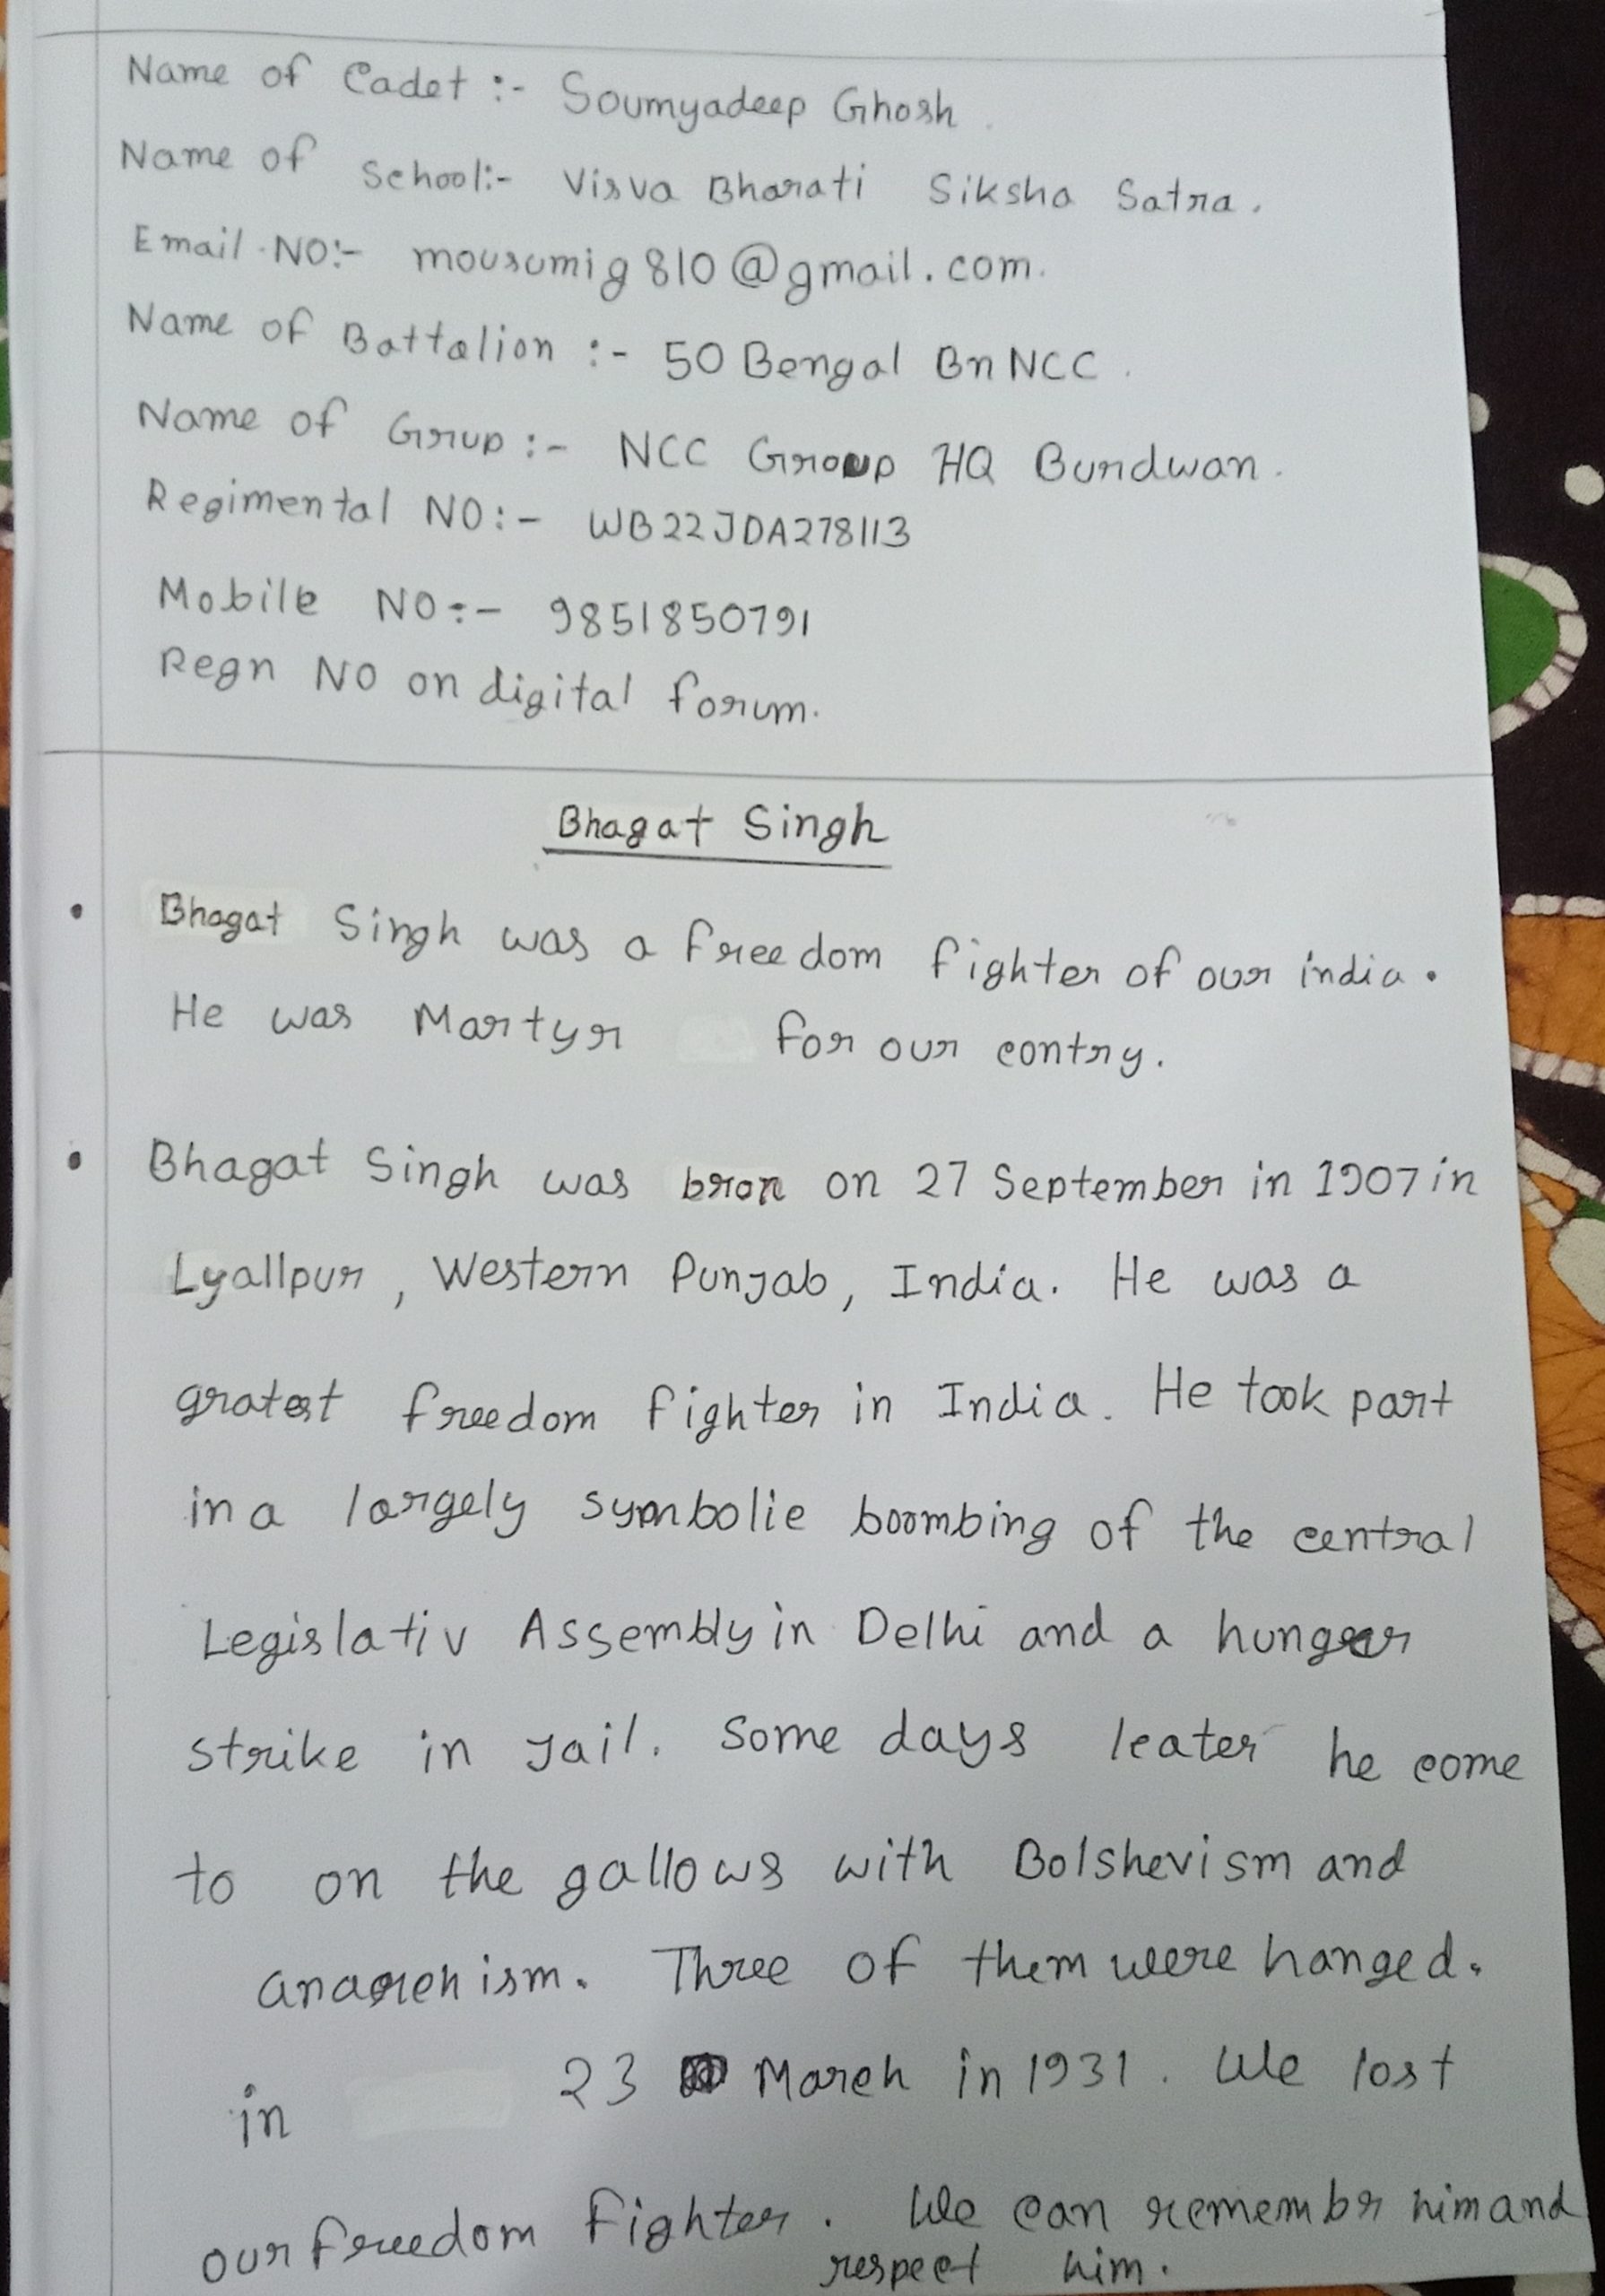 Name of Cadet :- Soumyadeep Ghosh.
Name of School:- Visva Bharati Siksha Satra.
Email.NO:- mousumig810@gmail.com.
Name of Battalion :- 50 Bengal Bn NCC.
Name of Grup :- NCC Group HQ Burdwan.
Regimental NO:- WB22JDA278113
Mobile NO:- 9851850791
Regn NO on digital forum.
Bhagat Singh
• Bhagat Singh was a freedom fighter of our india.
He was Martyr for our contry.
• Bhagat Singh was bron on 27 September in 1907 in
Lyallpur, Western Punjab, India. He was a
gratest freedom fighter in India. He took part
in a largely symbolic boombing of the central
Legislativ Assembly in Delhi and a hunger
strike in jail. Some days leater he come
to on the gallows with Bolshevism and
anarchism. Three of them were hanged.
in 23 March in 1931. We lost
our freedom fighter. We can remembr him and
respect him.